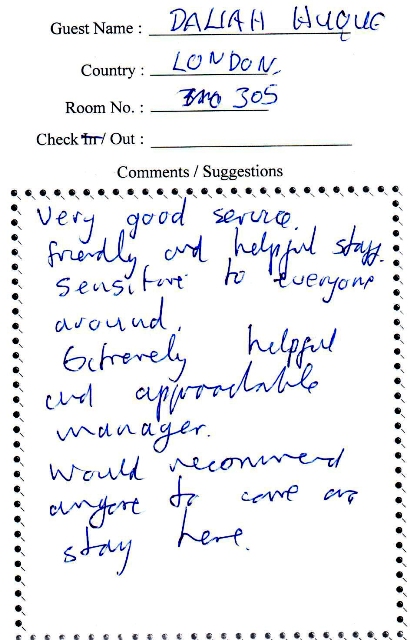 Guest Name : DALIAH HUQUE
Country : LONDON.
Room No. : 305
Check In / Out :
Comments / Suggestions
Very good service.
friendly and helpful staff.
Sensitive to everyone
around.
Extremely helpful
and approachable
manager.
Would recommend
anyone to come and
stay here.